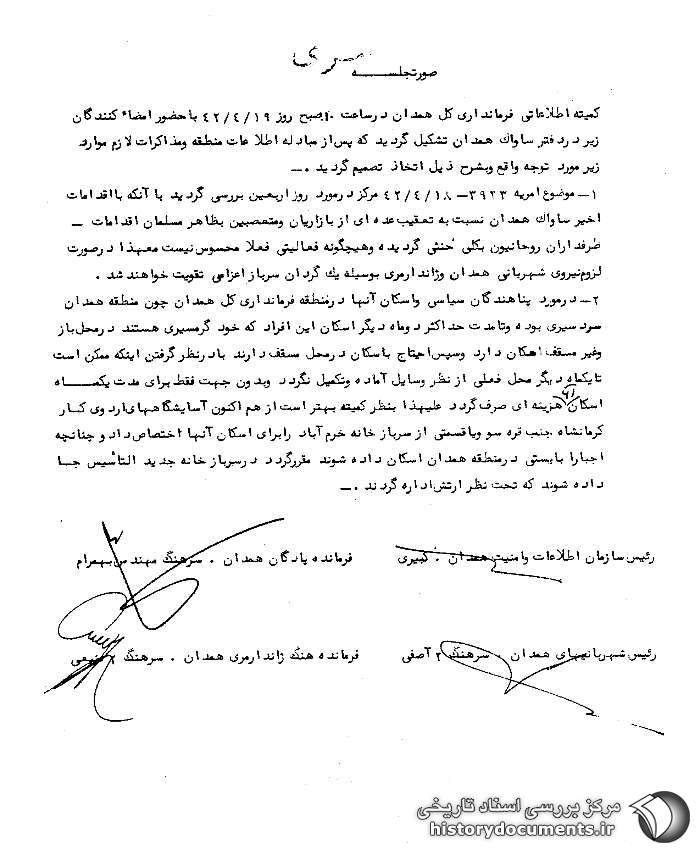 سری
صورتجلسه
کمیته اطلاعاتی فرمانداری کل همدان درساعت ۱۰صبح روز ۴۲/۴/۱۹ باحضور امضاء کنندگان
زیر دردفتر ساواك همدان تشکیل گردید که پس‌از مبادله اطلاعات منطقه ومذاکرات لازم موارد
زیر مورد توجه واقع وبشرح ذیل اتخاذ تصمیم گردید .ـ
۱ـ موضوع امریه ۳۹۲۳ـ ۴۲/۴/۱۸ مرکز درمورد روز اربعین بررسی گردید با آنکه بااقدامات
اخیر ساواك همدان نسبت به تعقیب‌عده ای از بازاریان ومتعصبین بظاهر مسلمان اقدامات ـ
طرفداران روحانیون بکلی خنثی گردیده وهیچگونه فعالیتی فعلا محسوس نیست معهذا درصورت
لزوم‌نیروی شهربانی همدان وژاندارمری بوسیله یك گردان سرباز اعزامی تقویت خواهند شد .
۲ـ درمورد پناهندگان سیاسی واسکان آنها درمنطقه فرمانداری کل همدان چون منطقه همدان
سردسیری بوده وتامدت حداکثر دوماه دیگر اسکان این افراد که خود گرمسیری هستند درمحل‌باز
وغیر مسقف امکان دارد وسپس‌احتیاج باسکان درمحل مسقف دارند بادرنظر گرفتن اینکه ممکن است
تایکماه دیگر محل فعلی از نظر وسایل آماده وتکمیل نگردد وبدون جهت فقط برای مدت یکمـــاه
اسکان هزینه ای صرف‌گردد علیهذا بنظر کمیته بهتر است از هم اکنون آسایشگاههای‌اردوی کنار
کرمانشاه جنب قره سو ویاقسمتی از سرباز خانه خرم‌آباد رابرای اسکان آنها اختصاص‌داد و چنانچه
اجبارا بایستی درمنطقه همدان اسکان داده شوند مقررگردد درسرباز خانه جدید التأسیس جـا
داده شوند که تحت نظر ارتش‌اداره گردند .ـ
رئیس‌سازمان اطلاعات وامنیت همدان . کبیری
فرمانده پادگان همدان . سرهنگ مهندس‌بهرام
رئیس‌شهربانیهای همدان . سرهنگ ۲ آصفی
فرمانده هنگ ژاندارمری همدان . سرهنگ ۲
مرکز بررسی اسناد تاریخی
historydocuments.ir